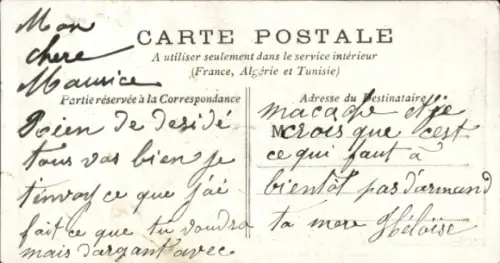 Mon
chere
Maurice
CARTE POSTALE
A utiliser seulement dans le service intérieur
(France, Algérie et Tunisie)
Partie réservée à la Correspondance
Rien de desidé
tous vas bien je
t'envoy ce que j'ai
fait ce que tu voudra
mais d'argant avec
Adresse du Destinataire
M
macade et je
crois que c'est
ce qui faut à
bientôt pas d'armand
ta mere Héloïse